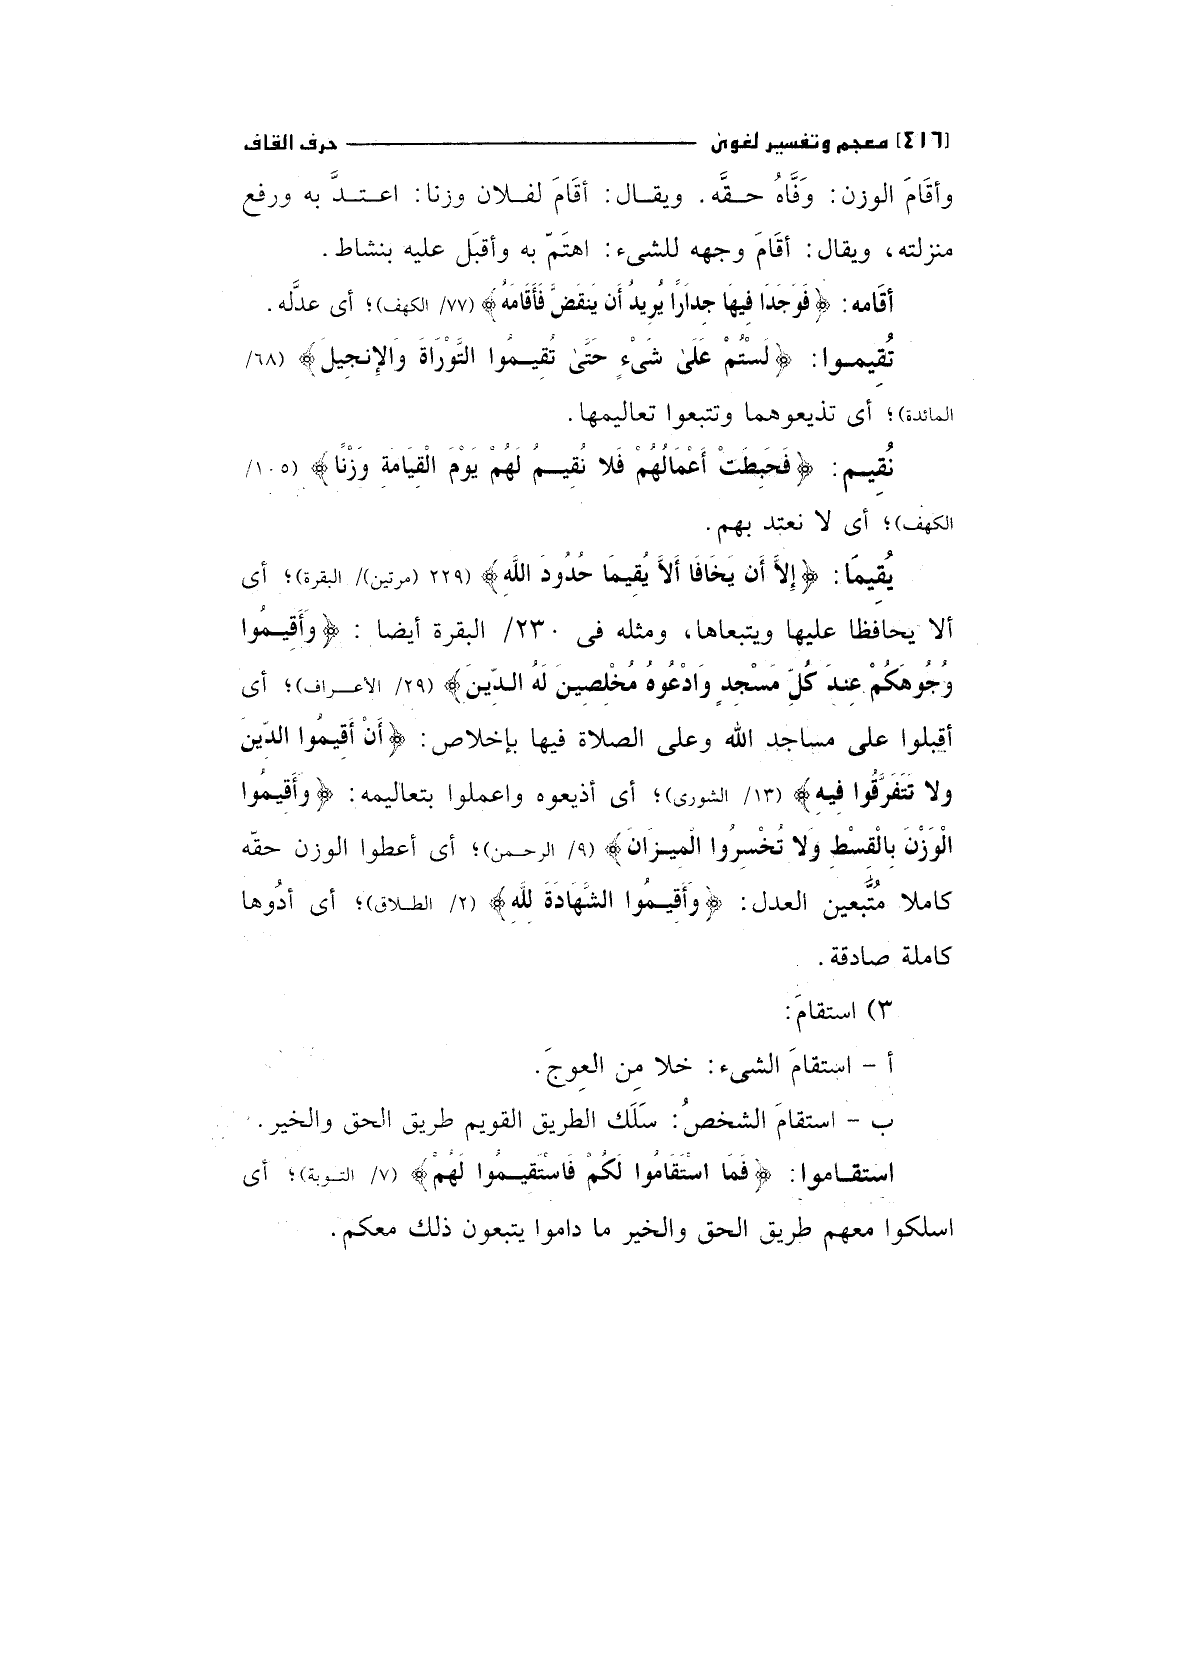 [٤١٦] معجم وتفسير لغوى ــــــــ حرف القاف
وأقَامَ الوزن: وَفَّاهُ حقَّه. ويقال: أقَامَ لفلان وزنا: اعتدَّ به ورفع
منزلته، ويقال: أقَامَ وجهه للشىء: اهتَمّ به وأقبَل عليه بنشاط.
أقَامه: ﴿فَوَجَدَا فِيهَا جِدَارًا يُرِيدُ أَن يَنقَضَّ فَأَقَامَهُ﴾ (٧٧/ الكهف)؛ أى عدَّله.
تُقِيموا: ﴿لَسْتُمْ عَلَىٰ شَىْءٍ حَتَّىٰ تُقِيمُوا التَّوْرَاةَ وَالإِنجِيلَ﴾ (٦٨/
المائدة)؛ أى تذيعوهما وتتبعوا تعاليمها.
نُقِيم: ﴿فَحَبِطَتْ أَعْمَالُهُمْ فَلا نُقِيمُ لَهُمْ يَوْمَ الْقِيَامَةِ وَزْنًا﴾ (١٠٥/
الكهف)؛ أى لا نعتد بهم.
يُقِيمَا: ﴿إِلاَّ أَن يَخَافَا أَلاَّ يُقِيمَا حُدُودَ اللَّهِ﴾ (٢٢٩ (مرتين)/ البقرة)؛ أى
ألا يحافظا عليها ويتبعاها، ومثله فى ٢٣٠/ البقرة أيضا : ﴿وَأَقِيمُوا
وُجُوهَكُمْ عِندَ كُلِّ مَسْجِدٍ وَادْعُوهُ مُخْلِصِينَ لَهُ الدِّينَ﴾ (٢٩/ الأعراف)؛ أى
أقبلوا على مساجد الله وعلى الصلاة فيها بإخلاص: ﴿أَنْ أَقِيمُوا الدِّينَ
وَلا تَتَفَرَّقُوا فِيهِ﴾ (١٣/ الشورى)؛ أى أذيعوه واعملوا بتعاليمه: ﴿وَأَقِيمُوا
الْوَزْنَ بِالْقِسْطِ وَلا تُخْسِرُوا الْمِيزَانَ﴾ (٩/ الرحمن)؛ أى أعطوا الوزن حقّه
كاملا مُتَّبعين العدل: ﴿وَأَقِيمُوا الشَّهَادَةَ لِلَّهِ﴾ (٢/ الطلاق)؛ أى أدُّوها
كاملة صادقة.
٣) استقامَ:
أ - استقامَ الشىء: خلا مِن العِوجَ.
ب - استقامَ الشخصُ: سَلَك الطريق القويم طريق الحق والخير.
استقاموا: ﴿فَمَا اسْتَقَامُوا لَكُمْ فَاسْتَقِيمُوا لَهُمْ﴾ (٧/ التوبة)؛ أى
اسلكوا معهم طريق الحق والخير ما داموا يتبعون ذلك معكم.